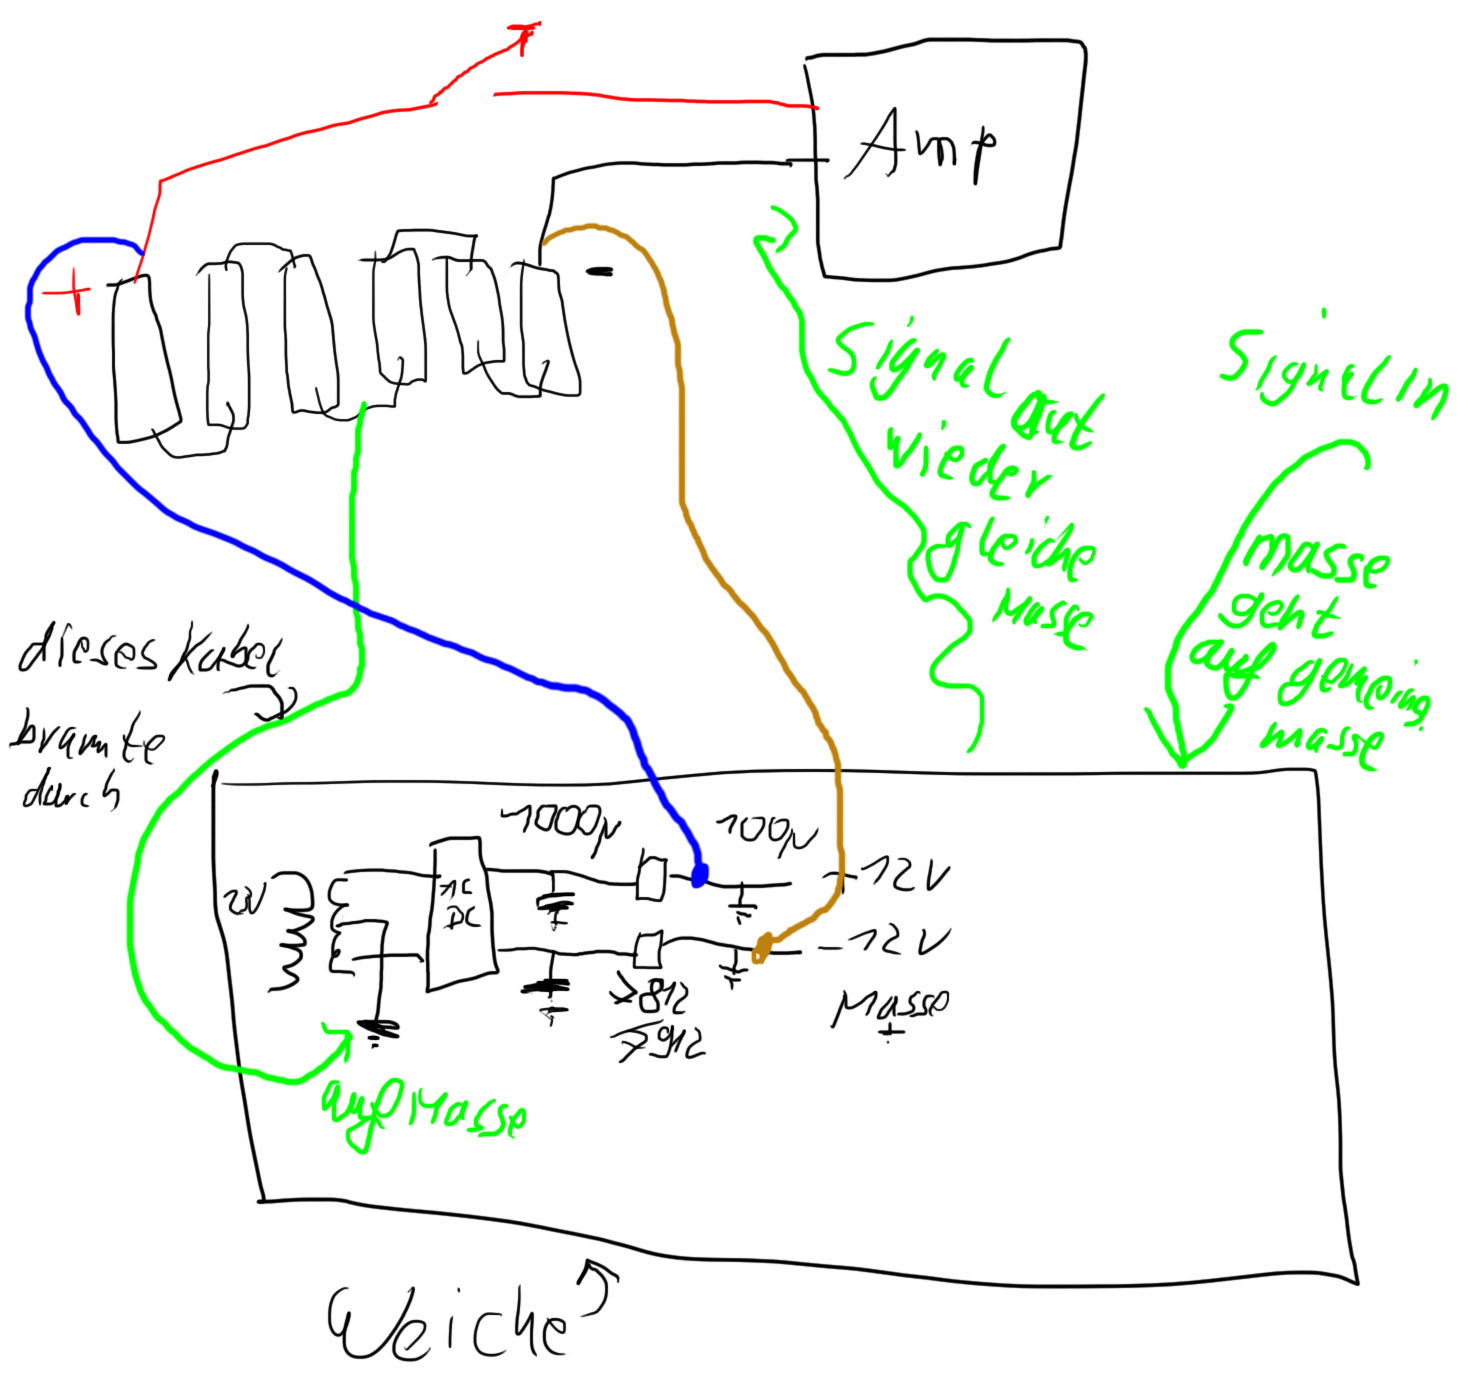 Amp
+
-
Signal out
wieder
gleiche
Masse
Signal in
masse
geht
auf gemeins.
masse
dieses Kabel
brannte
durch
1000µ
100µ
+12V
AC
DC
-12V
7812
7912
Masse
auf Masse
Weiche